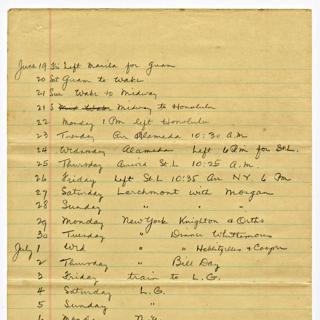 June 19 Fri Left Manila for Guam
20 Sat Guam to Wake
21 Sun Wake to Midway
21 S Midway to Honolulu
22 Monday 1 P.M left Honolulu
23 Tuesday Arr Alameda 10:30 A.M.
24 Wednesday Alameda Left 6 P.M for St.L.
25 Thursday Arrive St.L 10:25 A.M.
26 Friday Left St.L 10:35 Arr N.Y. 6 P.M
27 Saturday Larchmont with Morgan
28 Sunday " " "
29 Monday New York Knighton & Orths
30 Tuesday " Dinner Whittimous
July 1 Wed " " & Cooper
2 Thursday " Bill Day
3 Friday train to L.G.
4 Saturday L.G.
5 Sunday "
6 Monday N.Y.